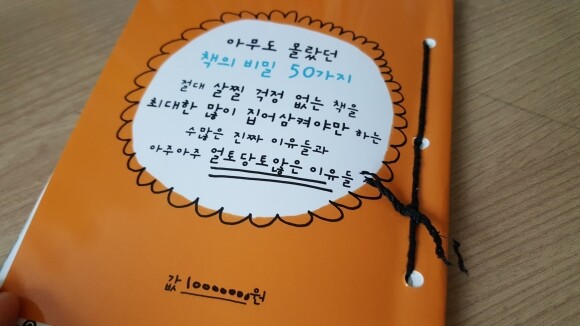 아무도 몰랐던
책의 비밀 50가지
절대 살찔 걱정 없는 책을
최대한 많이 집어삼켜야만 하는
수많은 진짜 이유들과
아주아주 얼토당토않은 이유들
값 1000000원